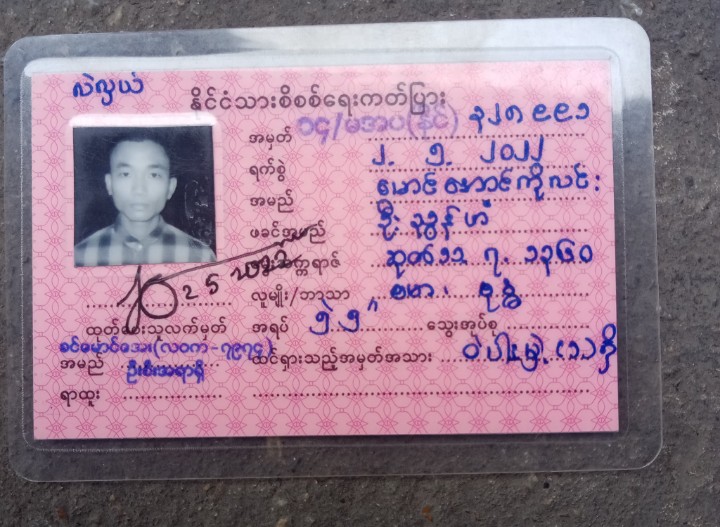 လဲလှယ်
နိုင်ငံသားစိစစ်ရေးကတ်ပြား
အမှတ် ၁၄/မအပ(နိုင်) ၃၂၈၉၉၁
ရက်စွဲ ၂. ၅. ၂၀၂၂
အမည် မောင်အောင်ကိုလင်း
ဖခင်အမည် ဦးညွန့်ဟံ
မွေးသက္ကရာဇ် ဆုတ်၁၁ ၇. ၁၃၆၀
လူမျိုး/ဘာသာ ဗမာ၊ ဗုဒ္ဓ
အရပ် ၅'၅" သွေးအုပ်စု
ထင်ရှားသည့်အမှတ်အသား
25 2022
ထုတ်ပေးသူလက်မှတ်
ခင်မောင်အေး(လဝက-၇၉၇၄)
အမည်
ဦးစီးအရာရှိ
ရာထူး